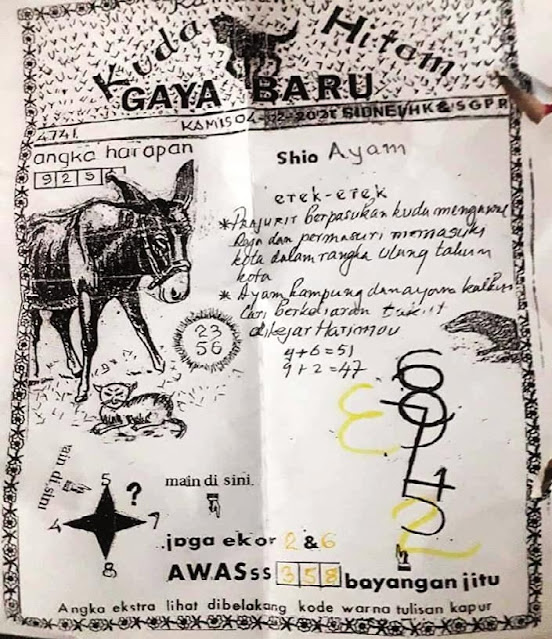 Kuda Hitam
GAYA BARU
KAMIS 04-02-2021 SIDNEY HK & SGPR
4741
angka harapan
Shio Ayam
erek-erek
* Prajurit berpasukan kuda mengawal
Raja dan permaisuri memasuki
kota dalam rangka ulang tahun
kota
* Ayam kampung dan ayam kalkun
lari berkeliaran
dikejar Harimau
4+6=51
9+2=47
23
56
main di sini
main di sini.
5
?
7
8
jaga ekor 2 & 6
AWASss 358 bayangan jitu
Angka ekstra lihat dibelakang kode warna tulisan kapur